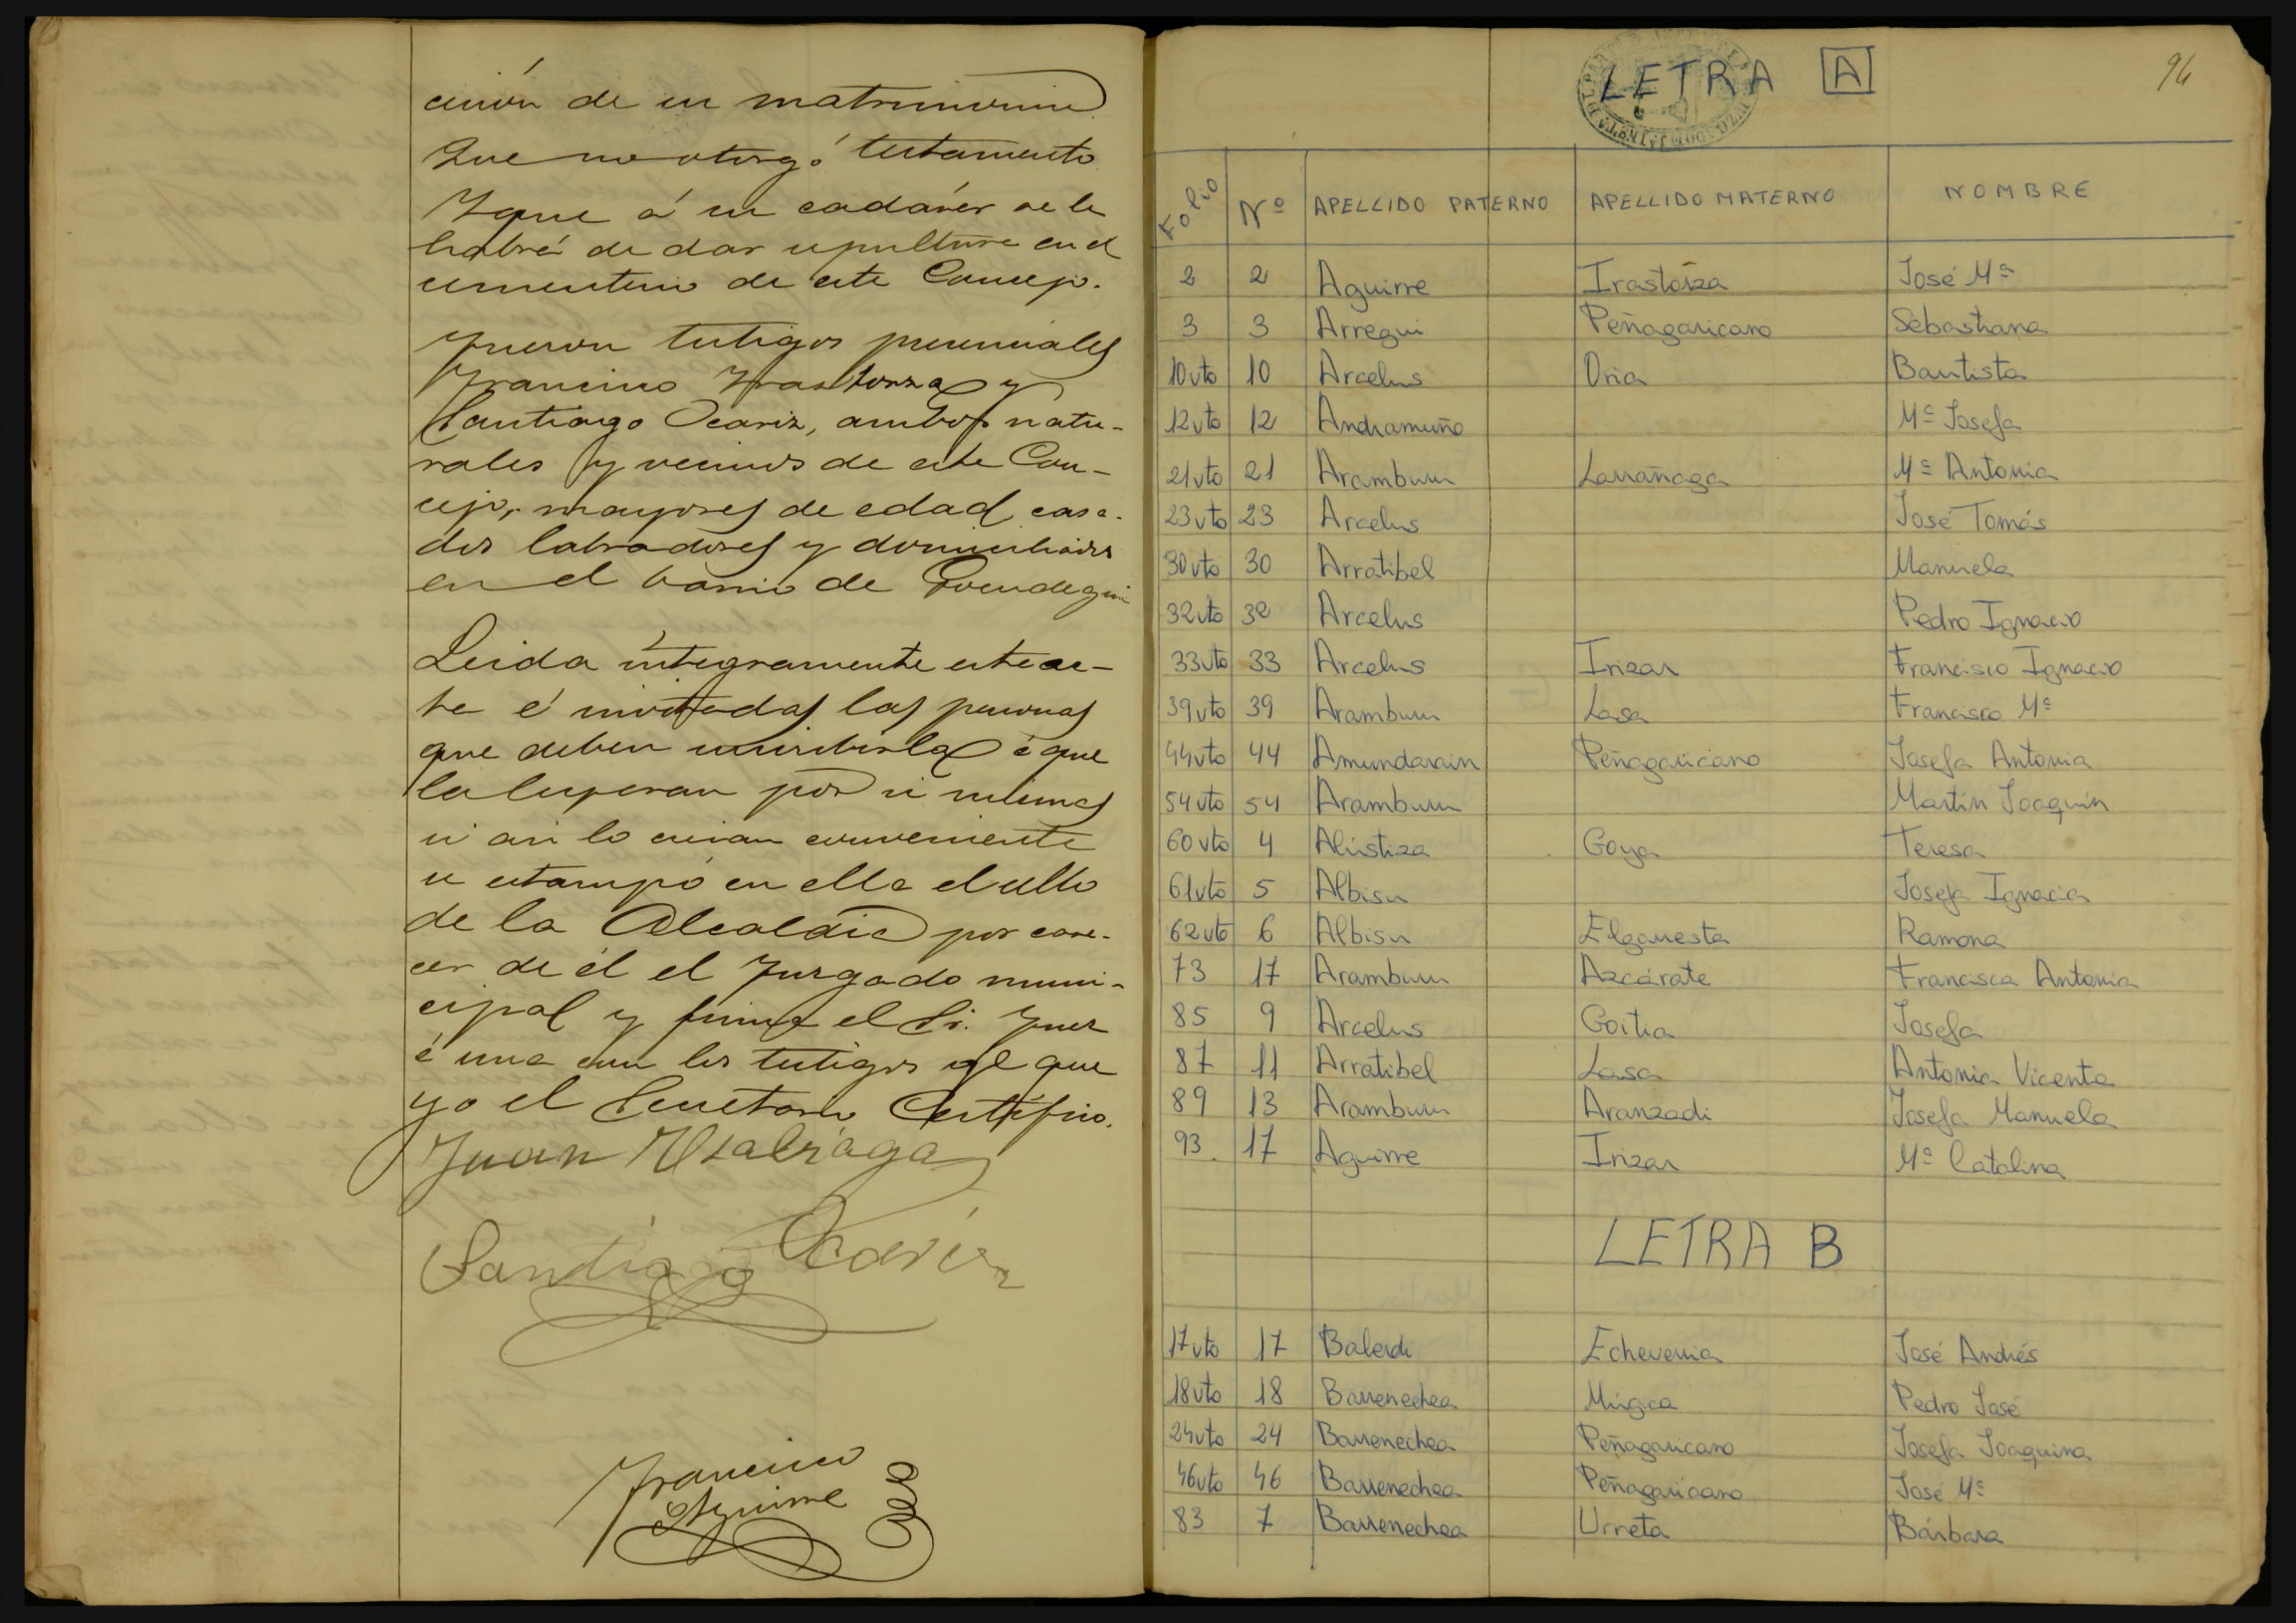 cición de su matrimonio.
Que no otorgó testamento.
Y que á su cadáver se le
habrá de dar sepultura en el
cementerio de este Concejo.
Fueron testigos presenciales
Francisco Irastorza y
Santiago Ocariz, ambos natu-
rales y vecinos de este Con-
cejo, mayores de edad, casa-
dos labradores y domiciliados
en el barrio de
Leida íntegramente este ac-
ta é invitadas las personas
que deben suscribirla á que
la leyeran por si mismas
si asi lo creian conveniente
se estampó en ella el sello
de la Alcaldía por care-
cer de él el Juzgado muni-
cipal y firma el Sr. Juez
é una con los testigos de que
yo el Secretario Certifico.
Juan
Santiago Ocariz
Francisco
Aguirre
LETRA A
94
Folio Nº APELLIDO PATERNO APELLIDO MATERNO NOMBRE
2 2 Aguirre Irastorza José Mª
3 3 Arregui Peñagaricano Sebastiana
10 vto 10 Arcelus Oria Bautista
12 vto 12 Andramuño Mª Josefa
21 vto 21 Aramburu Larrañaga Mª Antonia
23 vto 23 Arcelus José Tomás
30 vto 30 Arratibel Manuela
32 vto 32 Arcelus Pedro Ignacio
33 vto 33 Arcelus Irizar Francisco Ignacio
39 vto 39 Aramburu Lasa Francisco Mª
44 vto 44 Amundarain Peñagaricano Josefa Antonia
54 vto 54 Aramburu Martín Joaquín
60 vto 4 Alústiza Goya Teresa
61 vto 5 Albisu Josefa Ignacia
62 vto 6 Albisu Elgarresta Ramona
73 17 Aramburu Azcárate Francisca Antonia
85 9 Arcelus Goitia Josefa
87 11 Arratibel Lasa Antonia Vicenta
89 13 Aramburu Aranzadi Josefa Manuela
93. 17 Aguirre Irizar Mª Catalina
LETRA B
17 vto 17 Balerdi Echeverria José Andrés
18 vto 18 Barrenechea Múgica Pedro José
24 vto 24 Barrenechea Peñagaricano Josefa Joaquina
46 vto 46 Barrenechea Peñagaricano José Mª
83 7 Barrenechea Urreta Bárbara